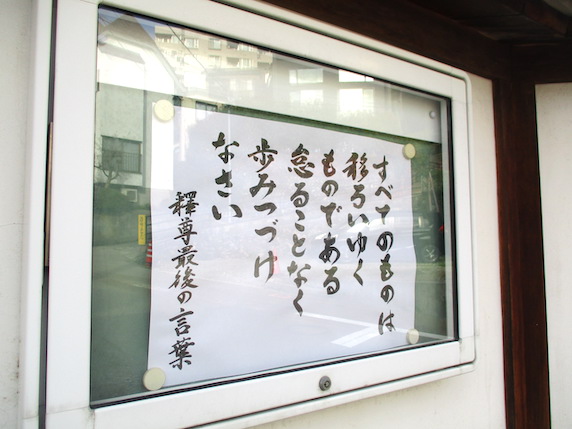 すべてのものは
移ろいゆく
ものである
怠ることなく
歩みつづけ
なさい
釋尊最後の言葉